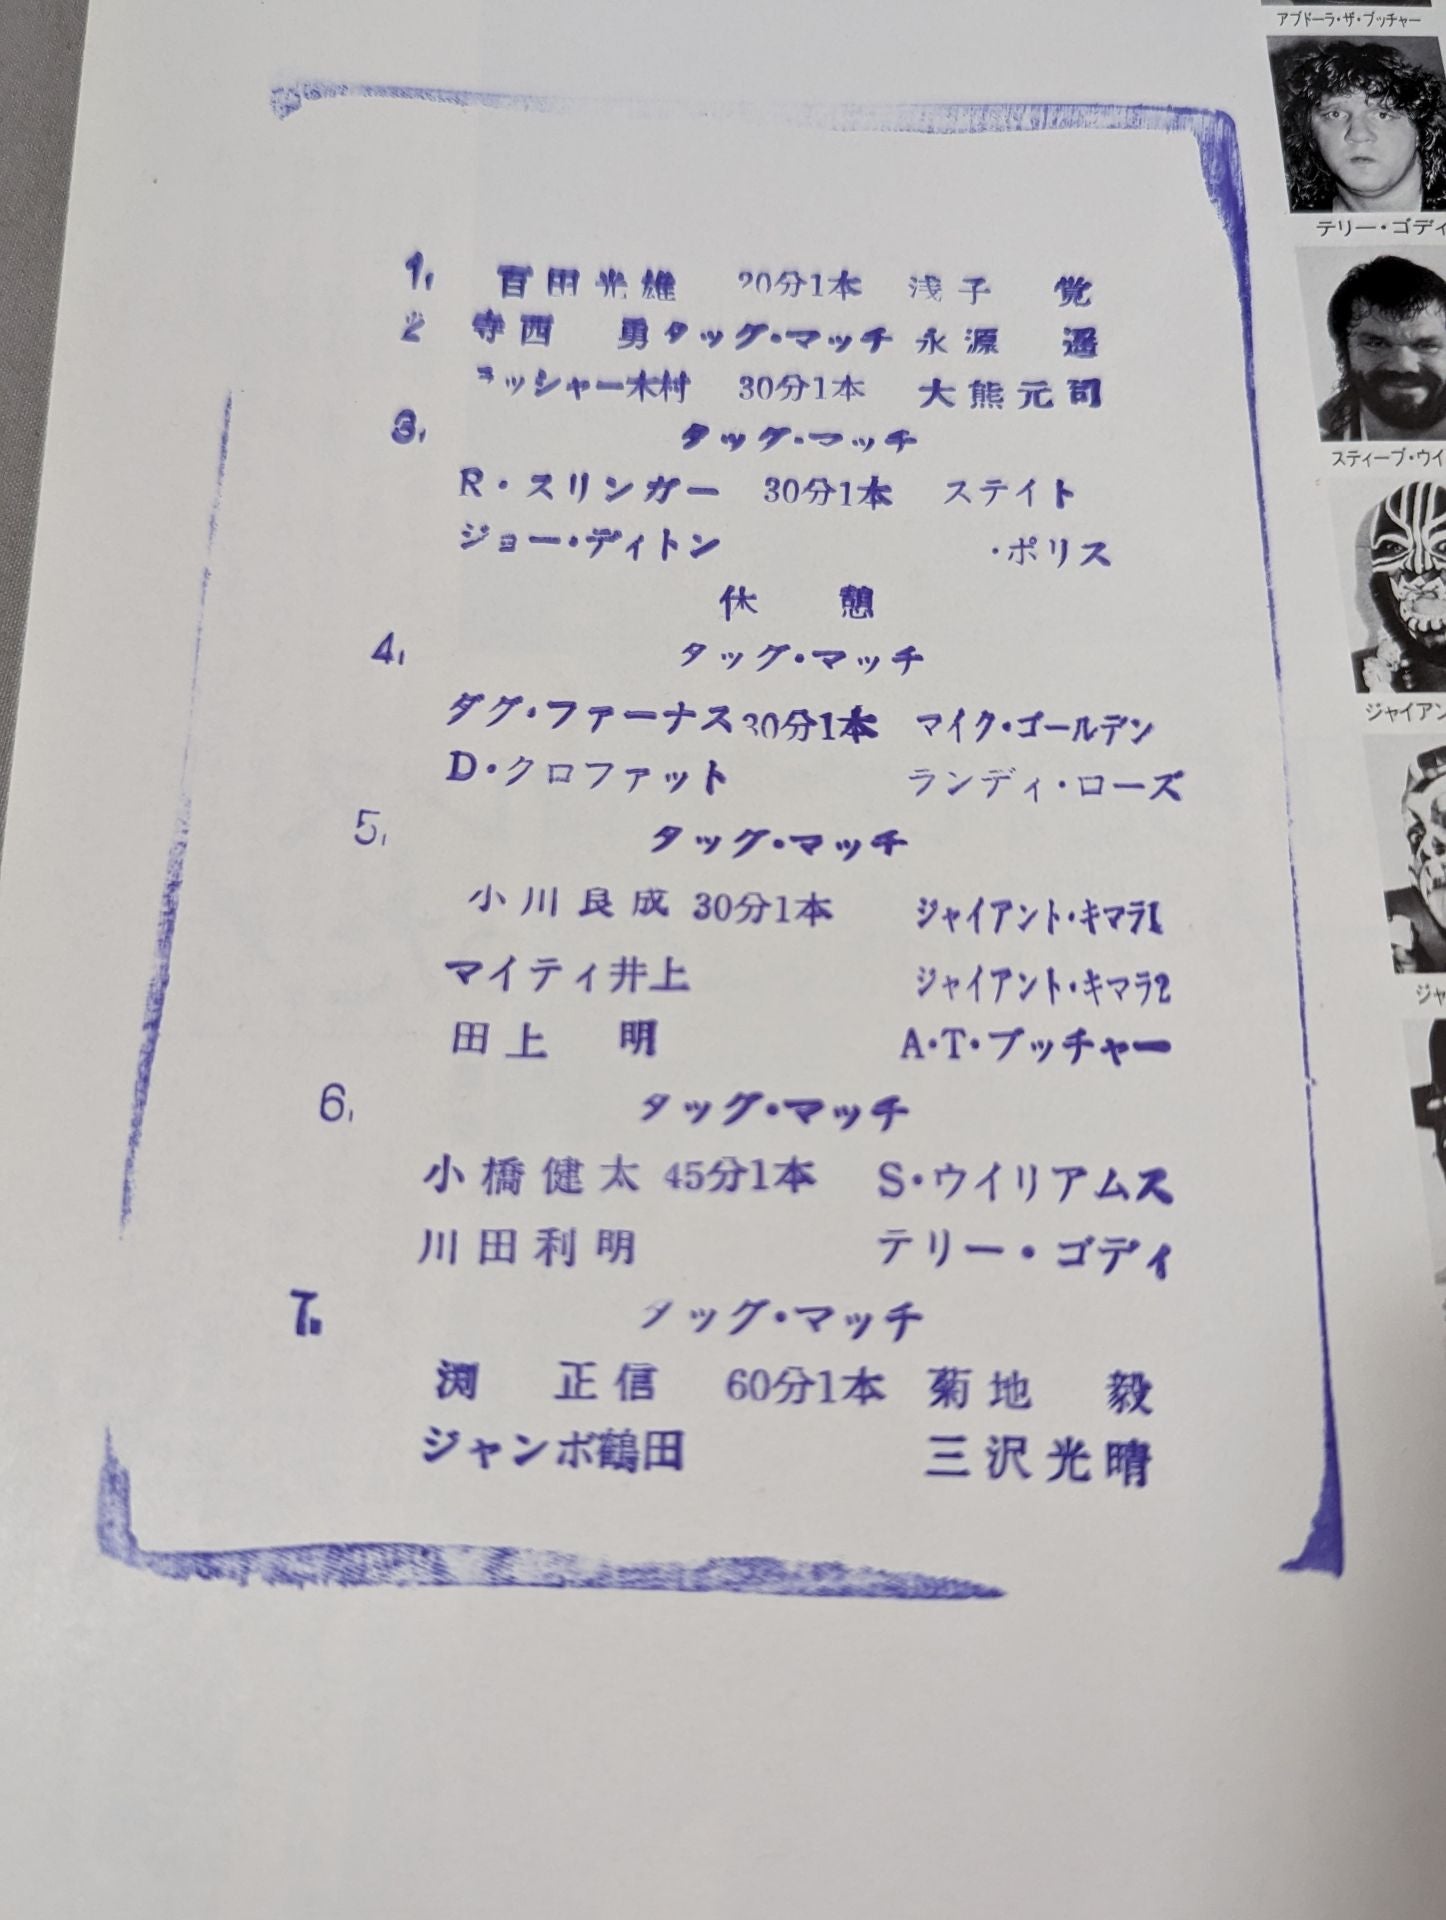 1. 百田光雄 20分1本 浅子 覚
2 寺西 勇 タッグ・マッチ 永源 遥
ラッシャー木村 30分1本 大熊元司
3. タッグ・マッチ
R・スリンガー 30分1本 ステイト
ジョー・ディトン ・ポリス
休 憩
4. タッグ・マッチ
ダグ・ファーナス 30分1本 マイク・ゴールデン
D・クロファット ランディ・ローズ
5. タッグ・マッチ
小川良成 30分1本 ジャイアント・キマラ1
マイティ井上 ジャイアント・キマラ2
田上 明 A・T・ブッチャー
6. タッグ・マッチ
小橋健太 45分1本 S・ウイリアムス
川田利明 テリー・ゴディ
7. タッグ・マッチ
渕 正信 60分1本 菊地 毅
ジャンボ鶴田 三沢光晴
アブドーラ・ザ・ブッチャー
テリー・ゴディ
スティーブ・ウイ
ジャイアン
ジャ